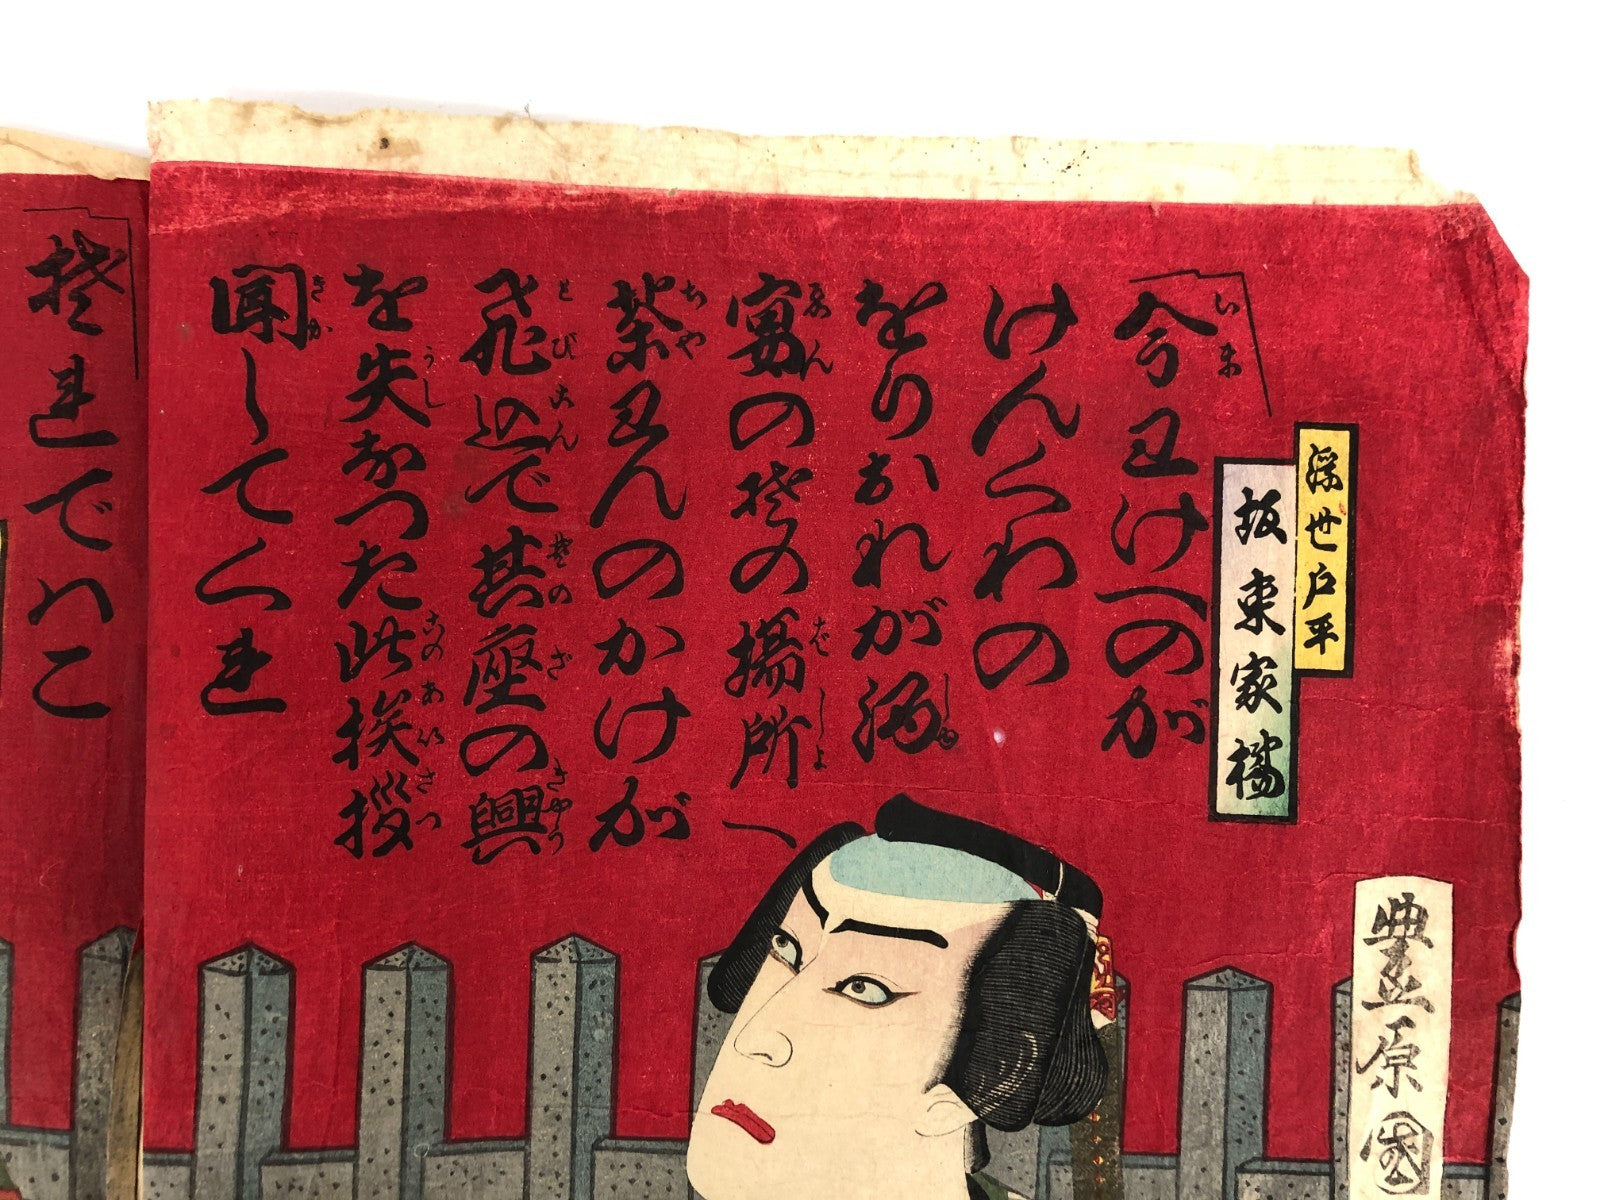 浮世戸平
坂東家橘
今わけへのが
けんくわの
をりおれが酒
宴のその場所へ
茶わんのかけが
飛込で其座の興
を失なつた此挨拶
聞してくれ
それでハこ
豊原国